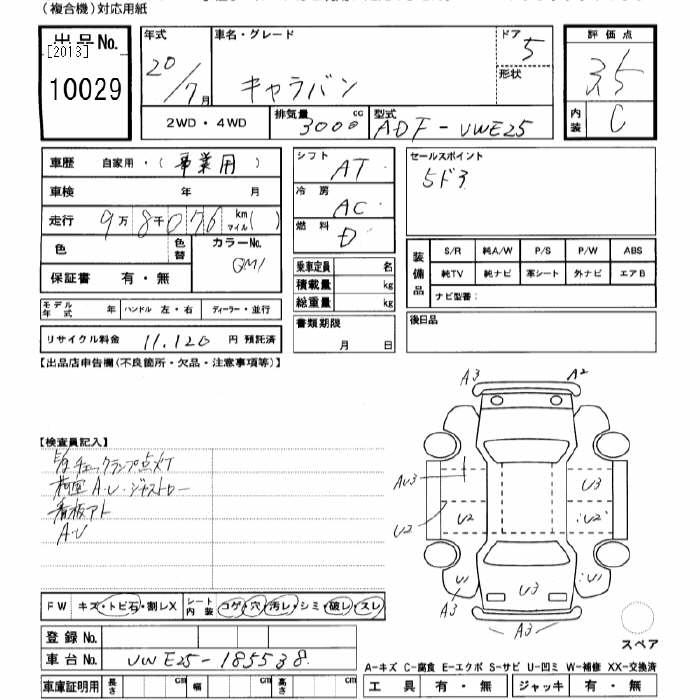 (複合機)対応用紙
出品No.
[2013]
10029
年式
20/7月
車名・グレード
キャラバン
ドア
5
形状
評価点
3.5
内装
C
2WD・4WD
排気量
3000
cc
型式
ADF-VWE25
車歴
自家用・(事業用)
車検
年
月
走行
9万8千076
km
マイル
( )
色
色替
カラーNo.
QM1
保証書
有・無
モデル年式
年
ハンドル 左・右
ディーラー・並行
リサイクル料金
11,120
円 預託済
シフト
AT
冷房
AC
燃料
D
乗車定員
名
積載量
kg
総重量
kg
書類期限
月
日
セールスポイント
5ドア
装備品
S/R
純A/W
P/S
P/W
ABS
純TV
純ナビ
革シート
外ナビ
エアB
ナビ型番:
後日品
【出品店申告欄(不良箇所・欠品・注意事項等)】
【検査員記入】
チェックランプ点灯
A・U・
看板アト
A・U
A3
A2
AU3
U3
U2
U2
U2
U1
U3
U1
A3
A3
スペア
FW
キズ・トビ石・割レX
シート内装
コゲ・穴・汚レ・シミ・破レ・スレ
登録No.
車台No.
VWE25-185538
車庫証明用
長さ
cm
幅
cm
高さ
cm
A-キズ C-腐食 E-エクボ S-サビ U-凹ミ W-補修 XX-交換済
工具
有・無
ジャッキ
有・無